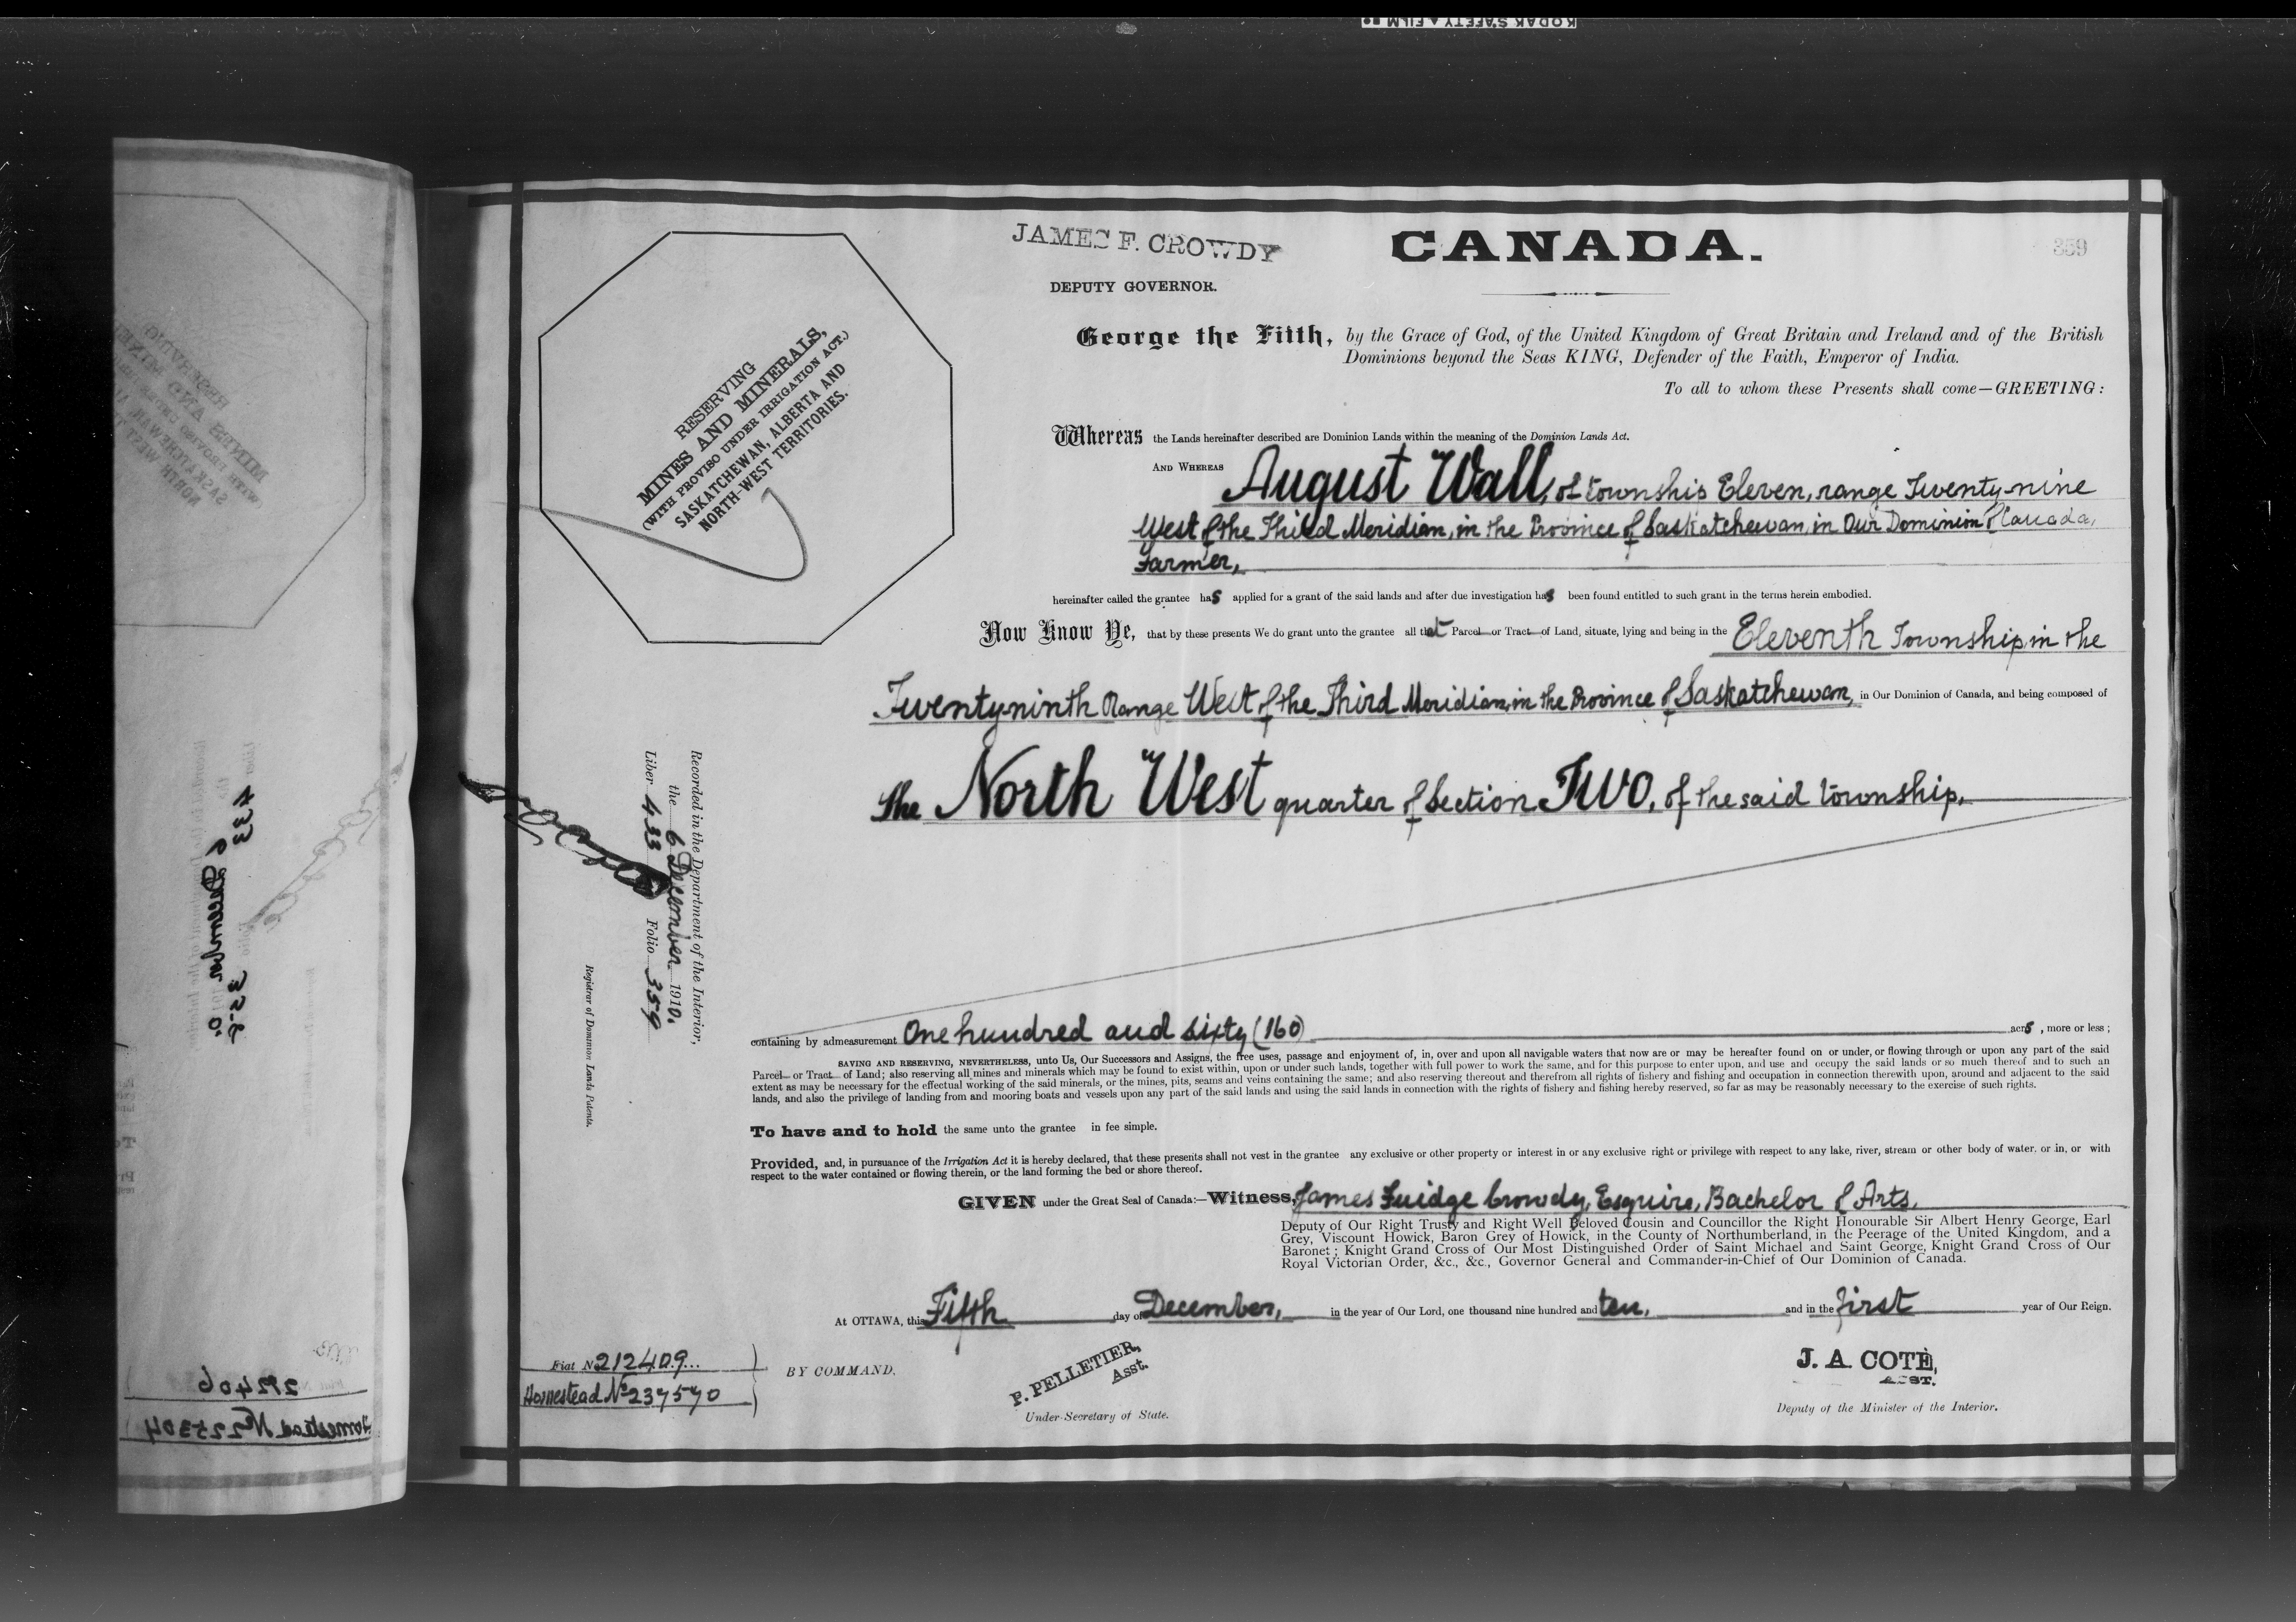 KODAK SAFETY FILM
JAMES F. CROWDY
DEPUTY GOVERNOR.
CANADA.
359
George the Fifth, by the Grace of God, of the United Kingdom of Great Britain and Ireland and of the British
Dominions beyond the Seas KING, Defender of the Faith, Emperor of India.
To all to whom these Presents shall come—GREETING:
RESERVING
MINES AND MINERALS,
(WITH PROVISO UNDER IRRIGATION ACT.)
SASKATCHEWAN, ALBERTA AND
NORTH-WEST TERRITORIES.
Whereas the Lands hereinafter described are Dominion Lands within the meaning of the Dominion Lands Act.
AND WHEREAS August Wall, of township Eleven, range Twenty-nine
West of the Third Meridian, in the Province of Saskatchewan, in Our Dominion of Canada,
Farmer,
hereinafter called the grantee has applied for a grant of the said lands and after due investigation has been found entitled to such grant in the terms herein embodied.
Now Know Ye, that by these presents We do grant unto the grantee all that Parcel or Tract of Land, situate, lying and being in the Eleventh Township, in the
Twenty-ninth Range West of the Third Meridian, in the Province of Saskatchewan, in Our Dominion of Canada, and being composed of
the North West quarter of Section Two, of the said township,
Recorded in the Department of the Interior,
the 6 December 1910.
Liber 433 Folio 359
Registrar of Dominion Lands Patents.
containing by admeasurement One hundred and sixty (160) acrs, more or less;
SAVING AND RESERVING, NEVERTHELESS, unto Us, Our Successors and Assigns, the free uses, passage and enjoyment of, in, over and upon all navigable waters that now are or may be hereafter found on or under, or flowing through or upon any part of the said
Parcel or Tract of Land; also reserving all mines and minerals which may be found to exist within, upon or under such lands, together with full power to work the same, and for this purpose to enter upon, and use and occupy the said lands or so much thereof and to such an
extent as may be necessary for the effectual working of the said minerals, or the mines, pits, seams and veins containing the same; and also reserving thereout and therefrom all rights of fishery and fishing and occupation in connection therewith upon, around and adjacent to the said
lands, and also the privilege of landing from and mooring boats and vessels upon any part of the said lands and using the said lands in connection with the rights of fishery and fishing hereby reserved, so far as may be reasonably necessary to the exercise of such rights.
To have and to hold the same unto the grantee in fee simple.
Provided, and, in pursuance of the Irrigation Act it is hereby declared, that these presents shall not vest in the grantee any exclusive or other property or interest in or any exclusive right or privilege with respect to any lake, river, stream or other body of water, or in, or with
respect to the water contained or flowing therein, or the land forming the bed or shore thereof.
GIVEN under the Great Seal of Canada:—Witness, James Fuidge Crowdy, Esquire, Bachelor of Arts,
Deputy of Our Right Trusty and Right Well Beloved Cousin and Councillor the Right Honourable Sir Albert Henry George, Earl
Grey, Viscount Howick, Baron Grey of Howick, in the County of Northumberland, in the Peerage of the United Kingdom, and a
Baronet; Knight Grand Cross of Our Most Distinguished Order of Saint Michael and Saint George, Knight Grand Cross of Our
Royal Victorian Order, &c., &c., Governor General and Commander-in-Chief of Our Dominion of Canada.
At OTTAWA, this Fifth day of December, in the year of Our Lord, one thousand nine hundred and ten, and in the first year of Our Reign.
Fiat No 212409
Homestead No 237570
BY COMMAND.
P. PELLETIER,
Asst.
Under-Secretary of State.
J. A. COTÉ,
ASST.
Deputy of the Minister of the Interior.
212406
Homestead No 225304